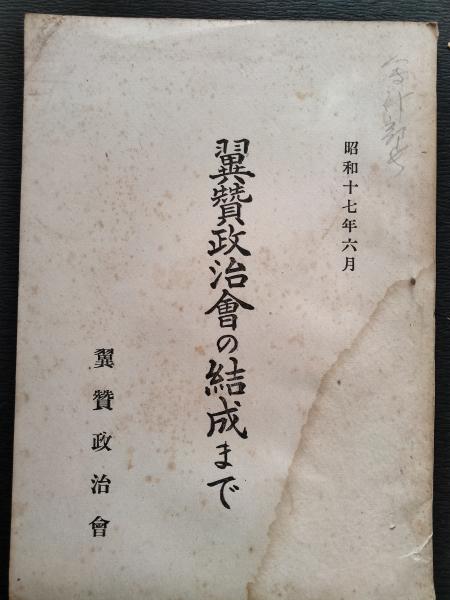 昭和十七年六月
翼贊政治會の結成まで
翼贊政治會